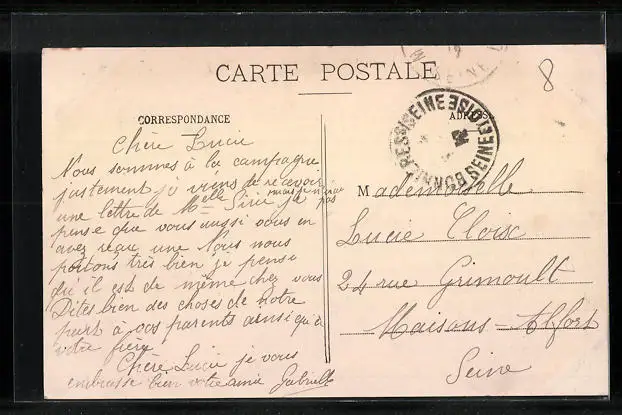 CARTE POSTALE
8
CORRESPONDANCE
Chère Lucie
Nous sommes à la campagne
justement je viens de recevoir
une lettre de Melle je
pense que vous aussi vous en
avez reçu une Nous nous
portons très bien je pense
qu'il est de même chez vous
Dites bien des choses de notre
part à vos parents ainsi qu'à
votre frère
Chère Lucie je vous
embrasse bien votre amie Gabrielle
Mademoiselle
Lucie Cloix
24 rue Grimoult
Maisons-Alfort
Seine